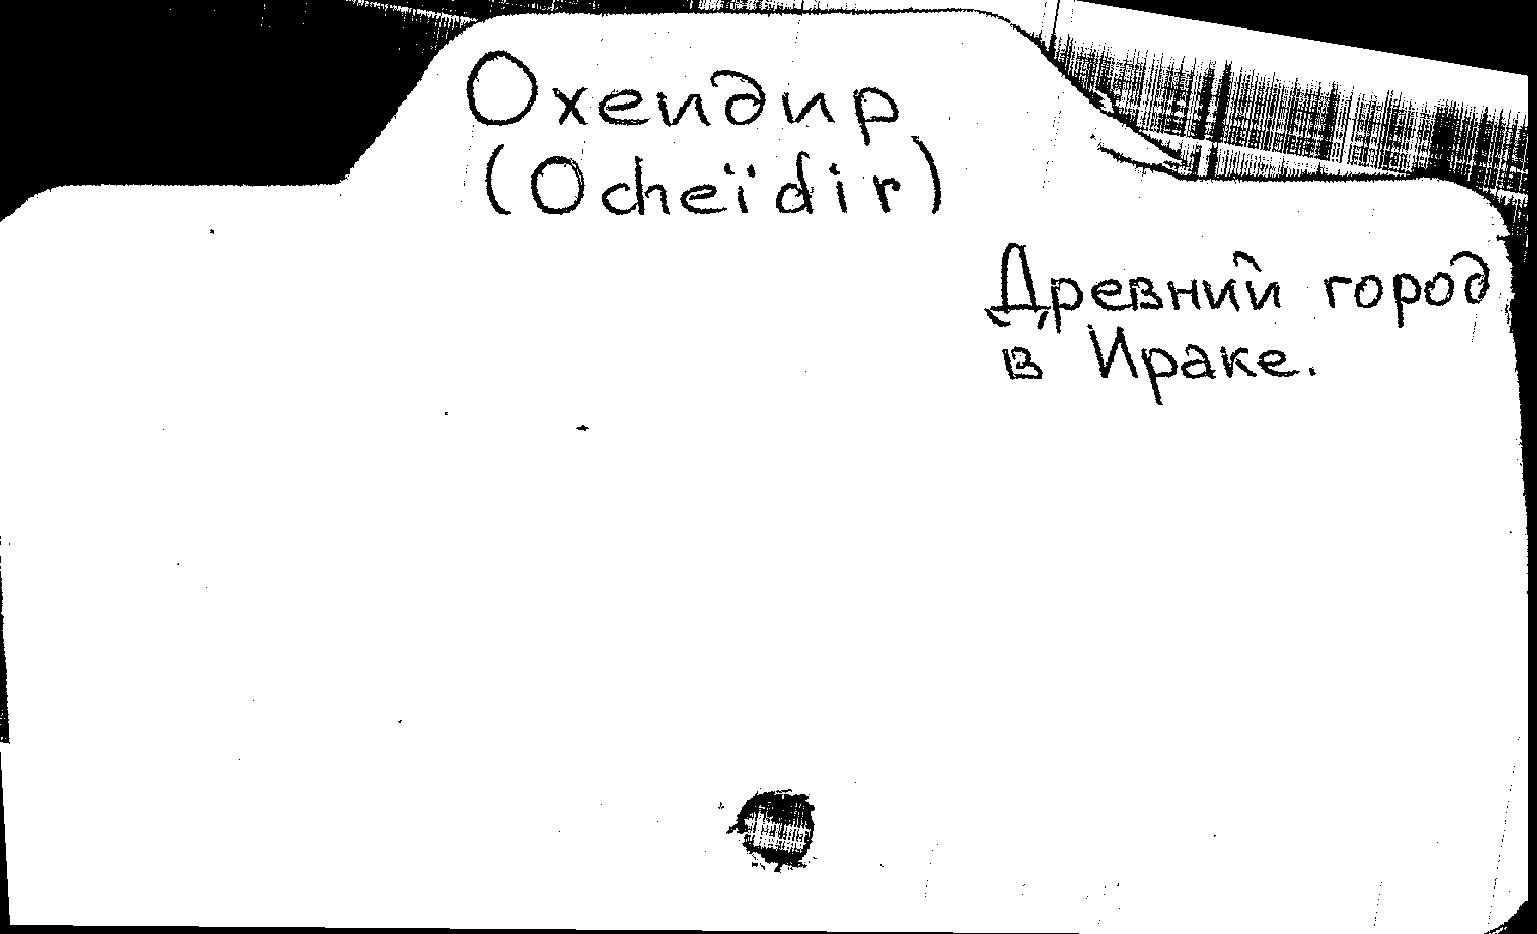 Охеидир
(Ocheïdir)
Древний город
в Ираке.